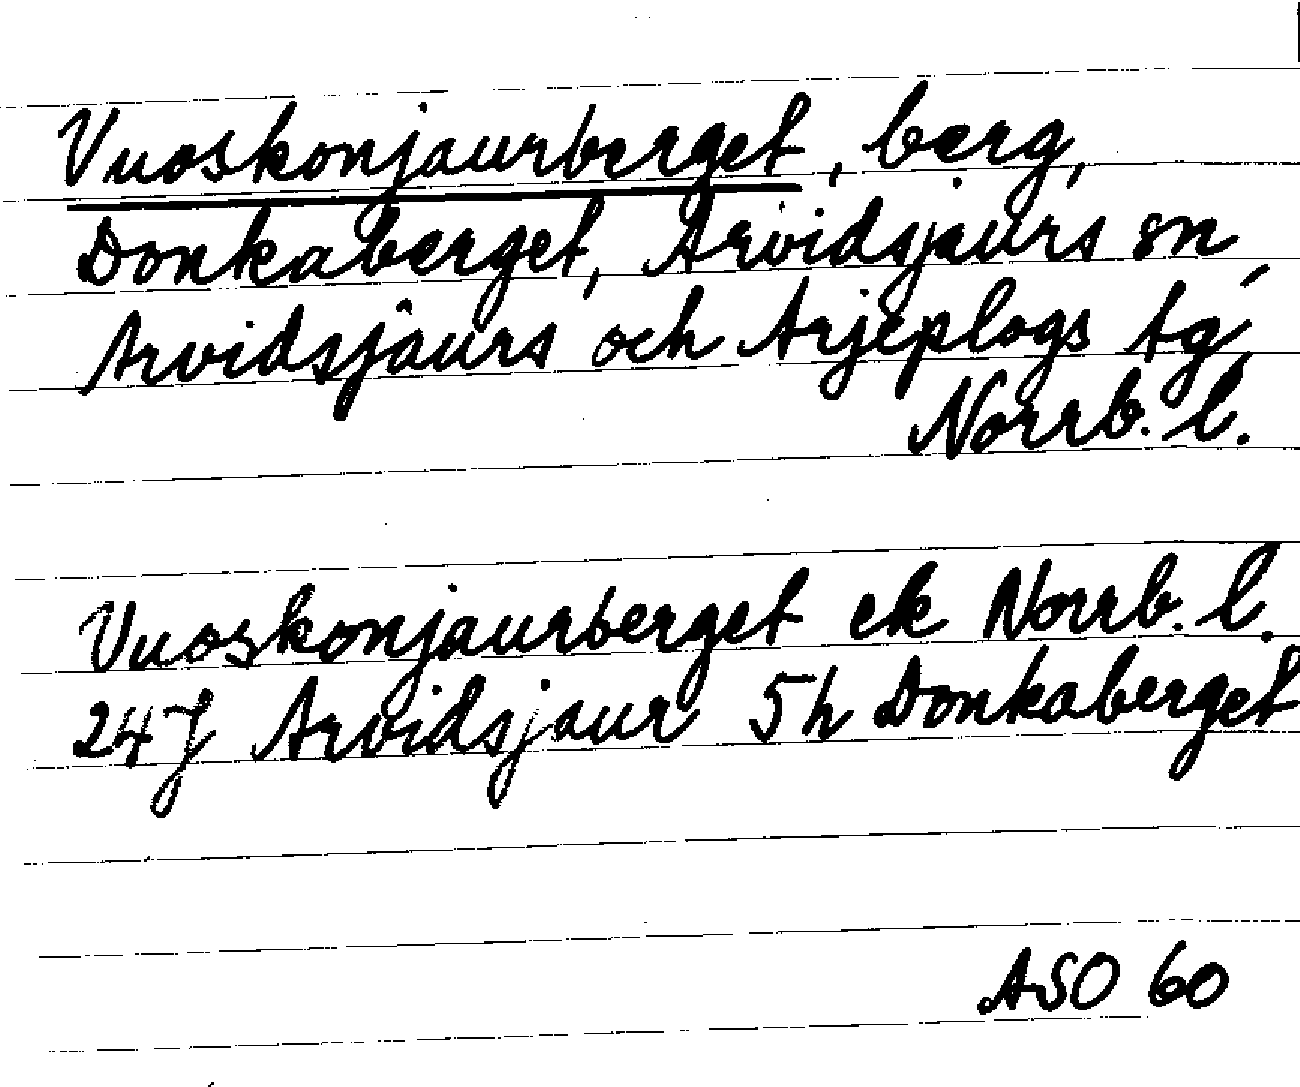 Vuoskonjaurberget, berg,
Donkaberget, Arvidsjaurs sn,
Arvidsjaurs och Arjeplogs tg,
Norrb. l.
Vuoskonjaurberget ek Norrb. l.
24J Arvidsjaur 5h Donkaberget
ASO 60